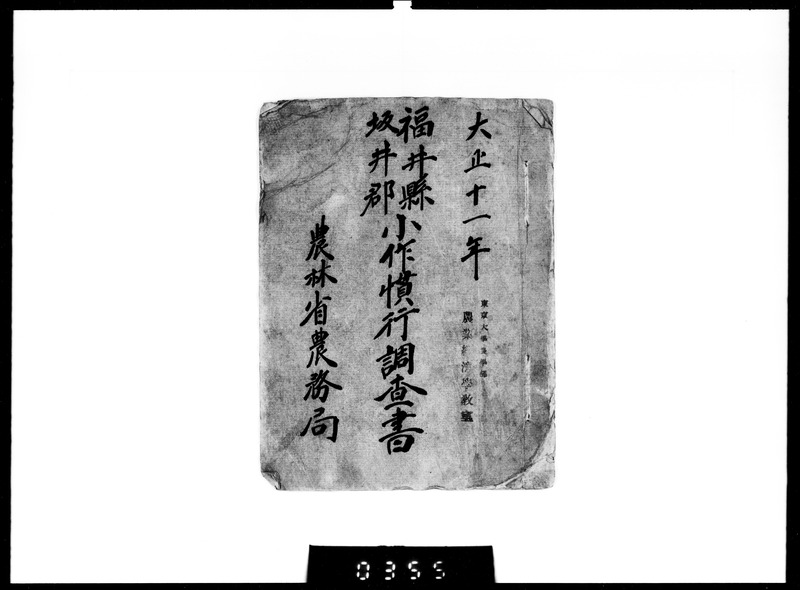 大正十一年
福井縣
坂井郡
小作慣行調査書
農林省農務局
東京大學農學部
農業經濟學教室
0355